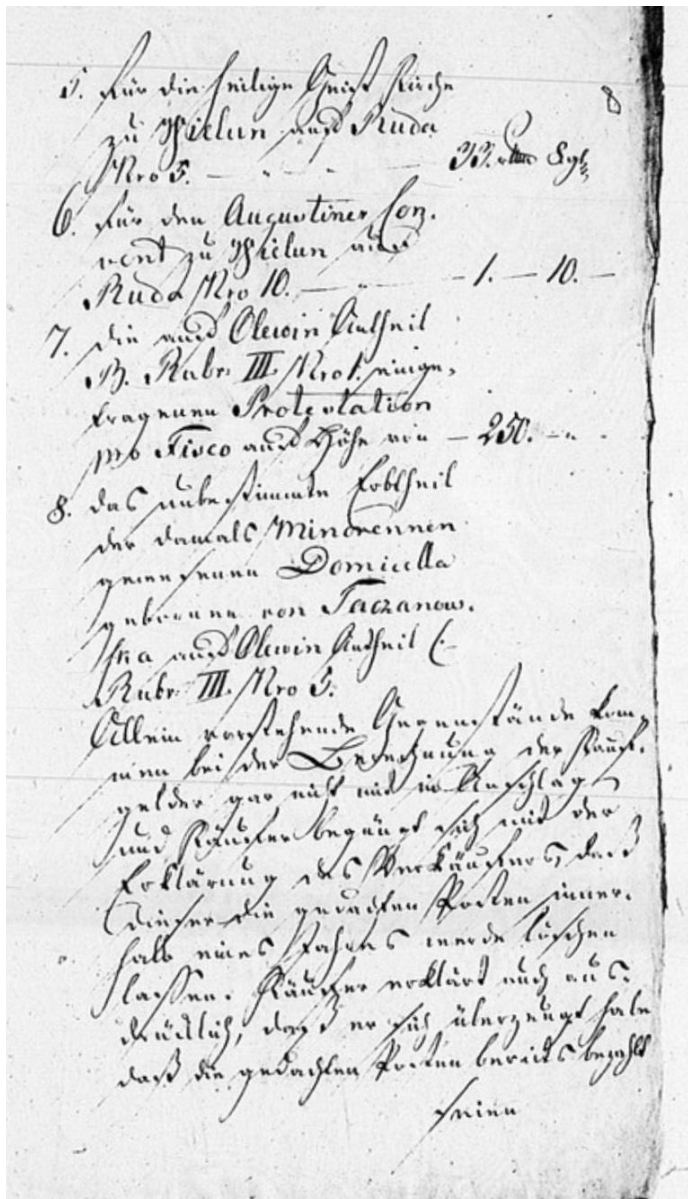 8
5. für die heilige Geist Kirche
zu Wielun auf Ruda
Nro 5. — " — " — 33. rtlr Sgl
6. für den Augustiner Con-
vent zu Wielun auf
Ruda Nro 10. — " — 1. — 10. —
7. die auf Olewin Antheil
B. Rubr. III. Nro 1. einge-
tragenen Protestation
pro Fisco auf Höhe von — 250. — " .
8. das unbestimmte Erbtheil
der damals Minorennen
gewesenen Domicella
geborene von Taczanow-
ska auf Olewin Antheil C.
Rubr. III. Nro 5.
Allein vorstehende Gegenstände kom-
men bei der Berechnung der Kauf-
gelder gar nicht mit in Anschlag
und Käufer begnügt sich mit der
Erklärung des Verkäufers, daß
dieser die gedachten Posten inner-
halb eines Jahres werde löschen
lassen. Käufer erklärt auch aus-
drücklich, daß er sich überzeugt habe
daß die gedachten Posten bereits bezahlt
seien